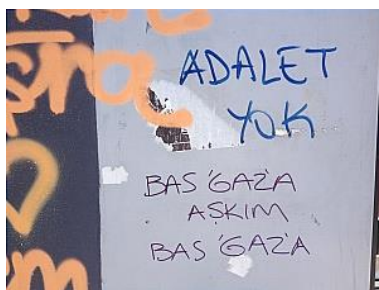 ADALET
YOK
BAS 'GAZ'A
AŞKIM
BAS 'GAZ'A